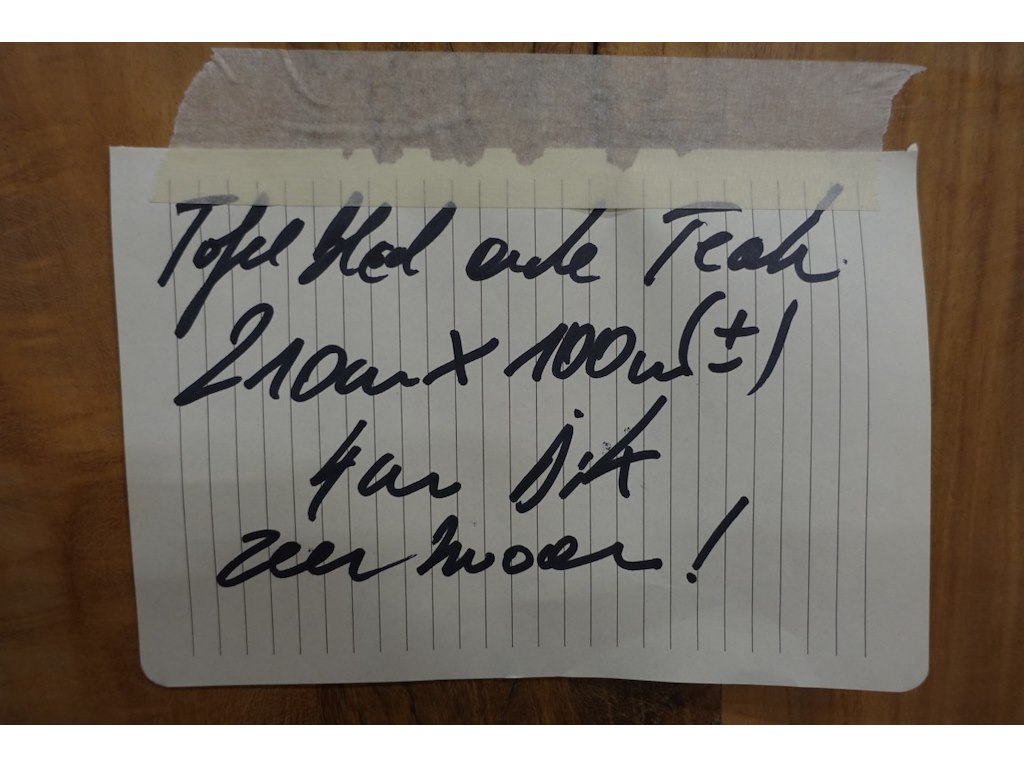 Tafelblad oude Teak.
210cm x 100cm (±)
4cm dik
zeer zwaar!